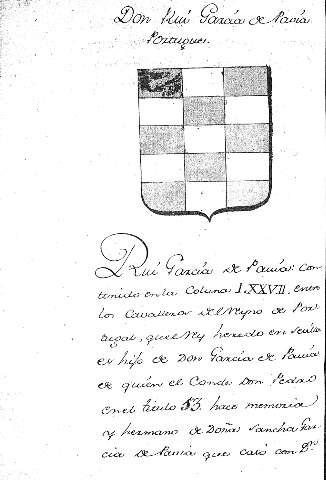 Don Rui García de Pavía
Portugues.
Rui García de Pavía con
tenido en la Coluna LXXVII. entre
los Cavalleros del Reyno de Por
tugal, que el Rey heredo en Sevilla
es hijo de Don García de Pavía
de quien el Conde Don Pedro
en el titulo 53. hace memoria
y hermano de Doña Sancha Gar
cia de Pavia que casó con Dn